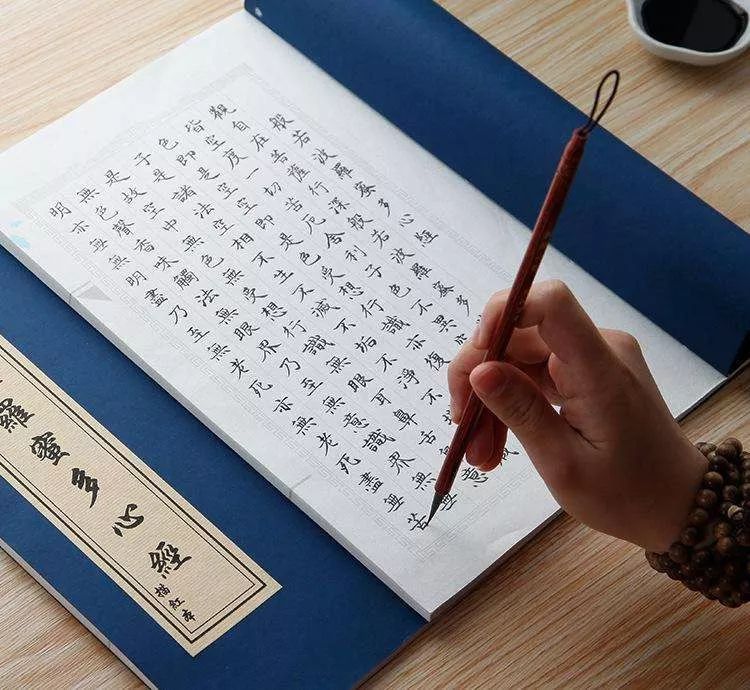 般若波羅蜜多心經
觀自在菩薩行深般若波羅蜜多
皆空度一切苦厄舍利子色不異
色即是空空即是色受想行識亦復
子是諸法空相不生不滅不垢不淨不
是故空中無色無受想行識無眼耳鼻舌意
無色聲香味觸法無眼界乃至無意識界無無
明亦無無明盡乃至無老死亦無老死盡無苦
羅蜜多心經
描紅本